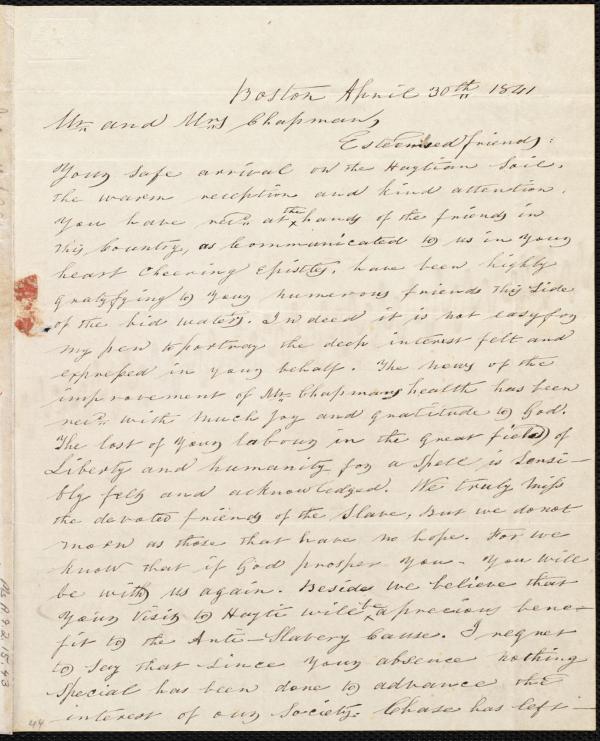 Boston April 30th 1841
Mr. and Mrs Chapman,
Esteemed friends:
Your safe arrival on the Haytian Soil,
the warm reception and kind attention,
you have recd. at the hands of the friends in
this Country, as Communicated to us in your
heart Cheering Epistles, have been highly
gratyfying to your numerous friends this side
of the bid waters. Indeed it is not easy for
my pen to portray the deep interest felt and
expressed in your behalf. The news of the
improvement of Mr. Chapmans health has been
recd. with much Joy and gratitude to God.
The lost of your labour in the great field of
Liberty and humanity for a Spell is Sensi-
bly felt and acknowledged. We truly Miss
the devoted friends of the Slave, but we do not
morn as those that have no hope. For we
know that if God prosper you - you will
be with us again. Beside we believe that
your Visit to Hayti will be a precious bene-
fit to the Anti-Slavery Cause. I regret
to Say that since your absence nothing
Special has been done to advance the
interest of our Society. Chase has left
44
Ms.A.9.2.15.43